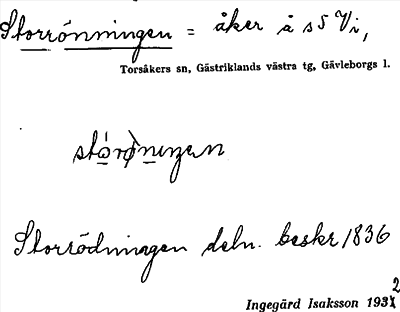 Storrönningen = åker å s S Vi,
Torsåkers sn, Gästriklands västra tg, Gävleborgs l.
Storrödningen deln. beskr 1836
Ingegärd Isaksson 1932